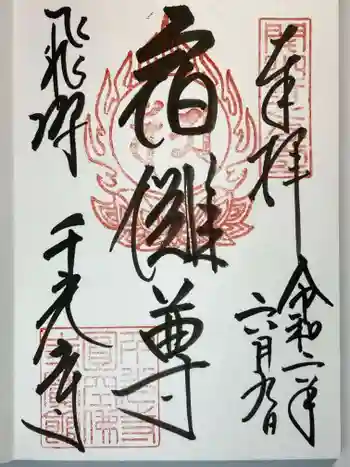 奉拝
令和二年
六月九日
宿儺尊
飛騨
千光寺